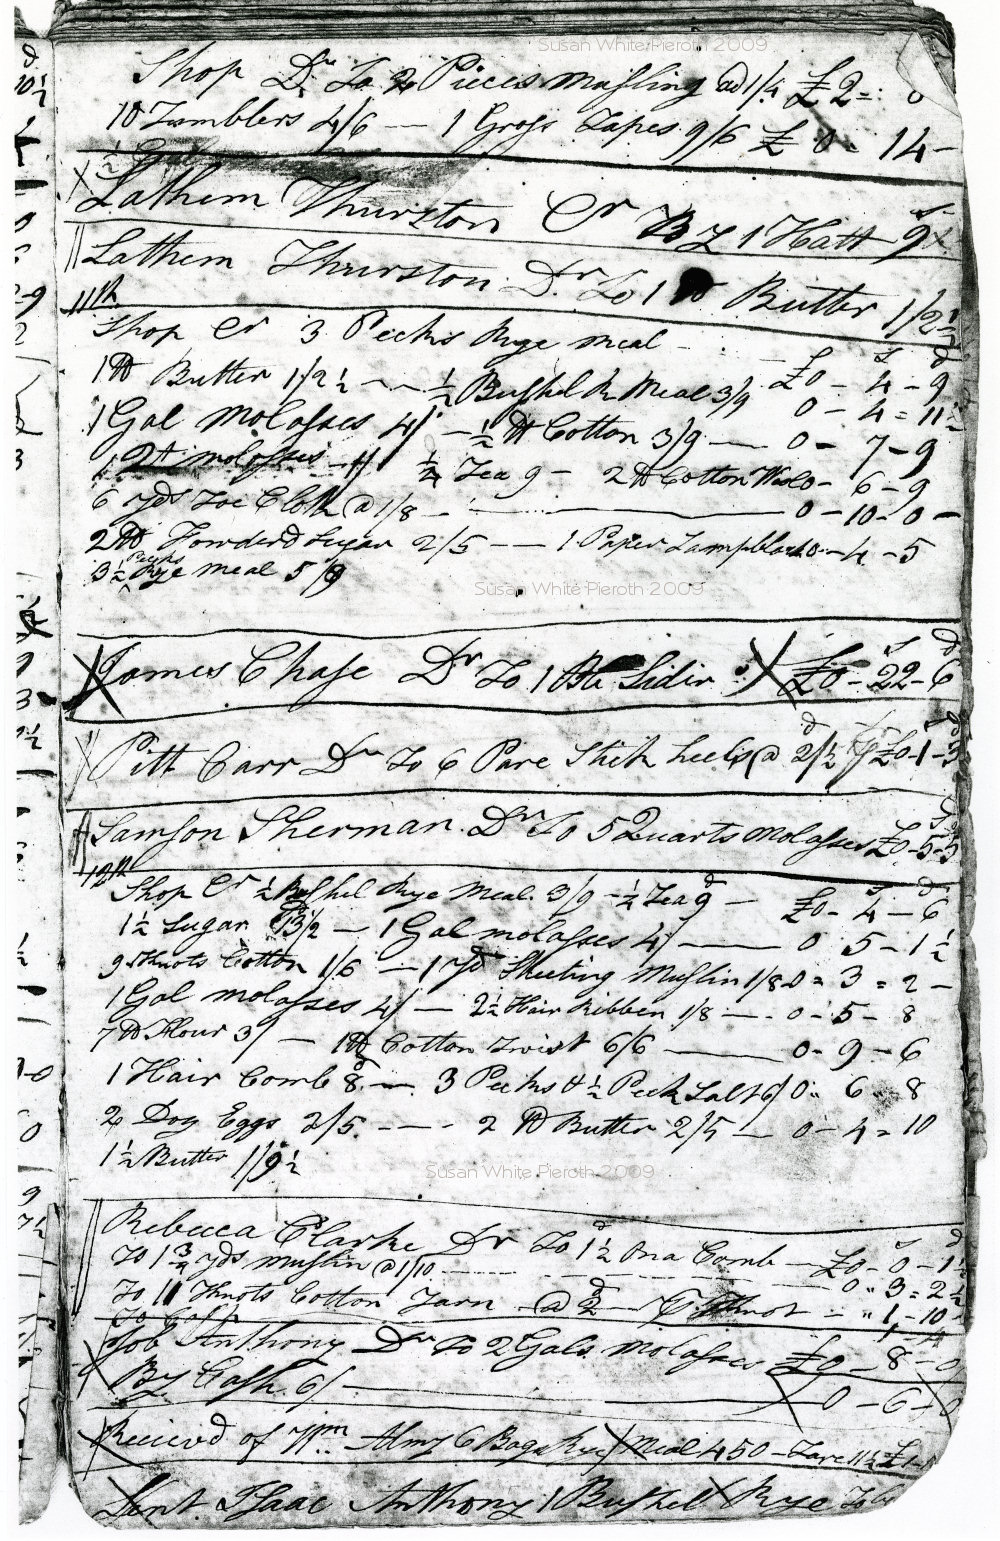 Susan White Pieroth 2009
Shop Dr To 2 Pieces Musling ad 1/4 £2=: 0
10 Tumblers 4/6 — 1 Groſs Tapes 9/6 £ 0 - 14 -
½ Gal
Lathem Thurston Cr By 1 Hatt 9
Lathem Thurston Dr To 1 lb Butter 1/2½
11th
Shop Cr 3 Pecks Rye Meal £0 - 4 - 9
1 lb Butter 1/2½ — ½ Buſhel R Meal 3/9 0 - 4 = 11½
1 Gal Molaſses 4/ — ½ lb Cotton 3/9 — 0 - 7 - 9
1 Qt molaſses 1/ ¼ Tea 9 - 2 lb Cotton Wool 0 - 6 - 9
6 yds Toe Cloth @ 1/8 — 0 - 10 - 0 -
2 lb Powderd Sugar 2/5 — 1 Paper Lampblack 0 - 4 - 5
3½ Pecks Rye Meal 5/9
Susan White Pieroth 2009
James Chaſe Dr To 1 Bb Sidir £0 - 22 - 6
Pitt Carr Dr To 6 Pare Stick heels @ 2½ £0 - 1 - 3
Samſon Sherman Dr To 5 Quarts Molaſses £0 - 5 - 5
12th
Shop Cr ½ Buſhel Rye Meal 3/9 - ¼ Tea 9 — £0 - 4 - 6
1½ Sugar 13½ — 1 Gal molaſses 4/ — 0 5 - 1½
9 Knots Cotton 1/6 — 1 yd Sheeting Muſlin 1/8 0 = 3 = 2 -
1 Gal molaſses 4/ — 2½ Hair Ribben 1/8 — 0 - 5 - 8
7 lb Flour 3/ — 1 lb Cotton Twist 6/6 — 0 - 9 - 6
1 Hair Comb 8 — 3 Pecks & ½ Peck Salt 6/ 0 " 6 " 8
2 Doz Eggs 2/5 - - - 2 lb Butter 2/5 — 0 - 4 = 10
1½ Butter 1/9½
Susan White Pieroth 2009
Rebecca Clarke Dr To 1½ Comb — £0 - 0 - 1½
To 1¾ yds muſlin @ 1/10 0 " 3 = 2½
To 11 Knots Cotton Yarn @ 2 Knot - " 1 - 10
To Caſh 1 - 4
Job Anthony Dr To 2 Gals Molaſses £0 - 8 - 0
By Caſh 6/ — 0 - 6 - 0
Recievd of Wm Almy 6 Bags Rye Meal 450 - Tare 11½
Lent Iſaac Anthony 1 Buſhel Rye